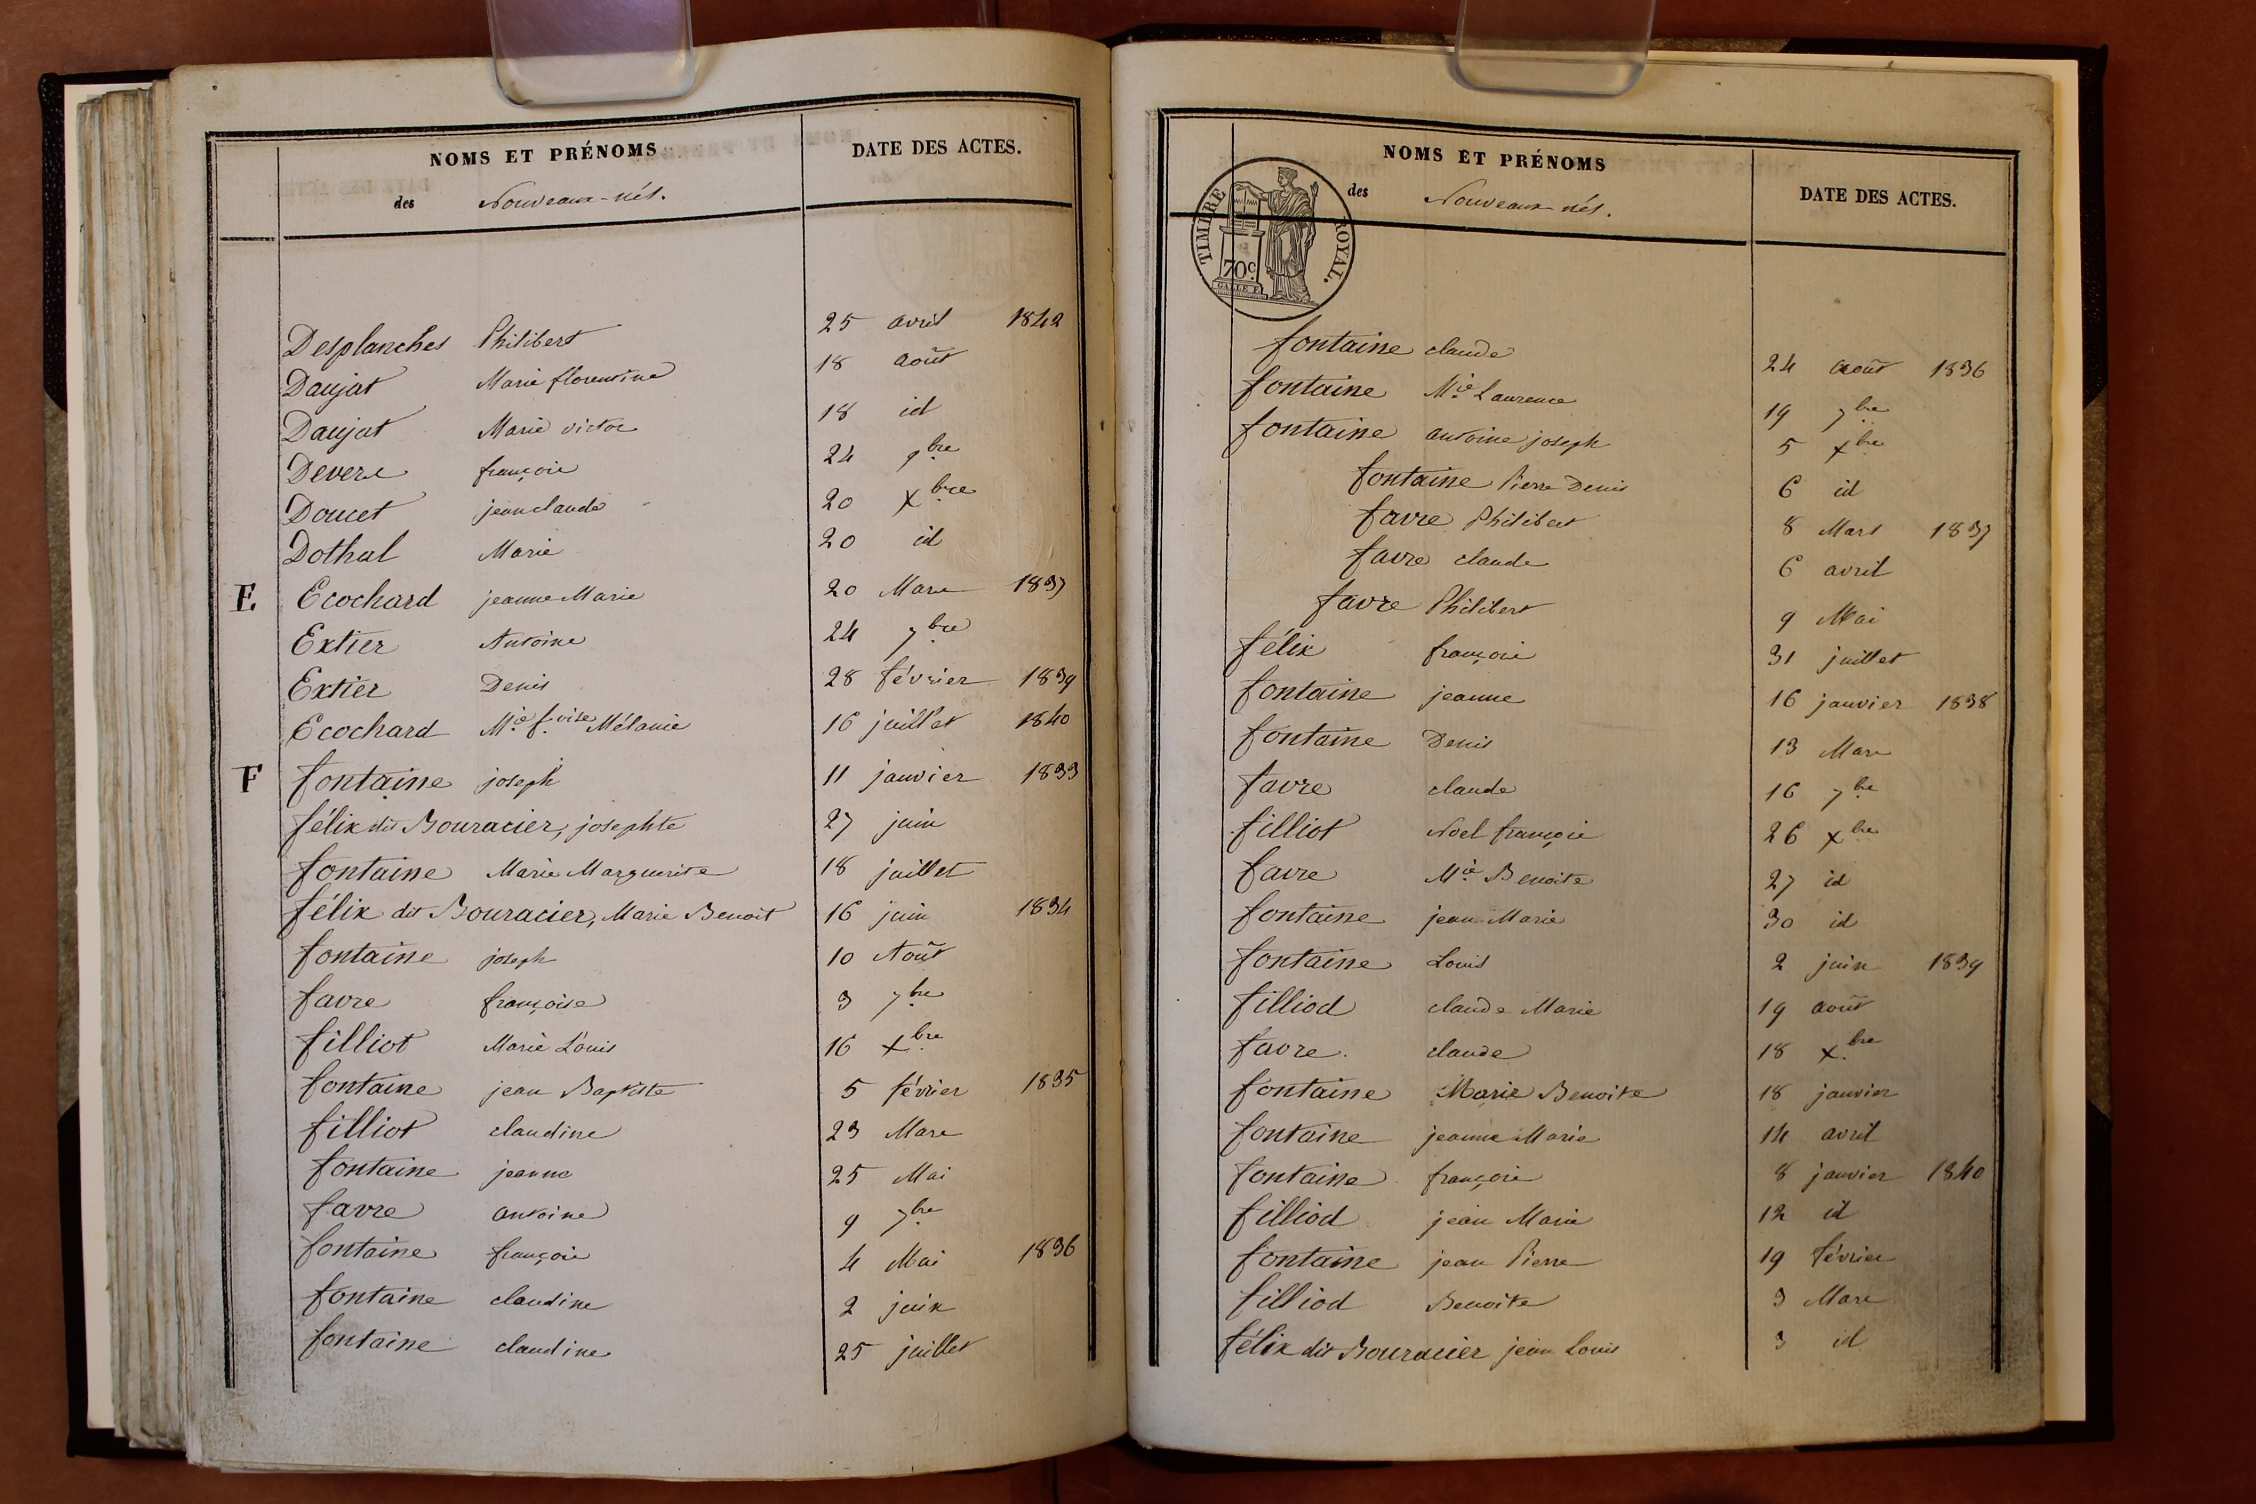 NOMS ET PRÉNOMS DATE DES ACTES.
des Nouveaux-nés.
Desplanches Philibert 25 avril 1842
Daujat Marie florentine 18 août
Daujat Marie victor 18 id
Devere françois 24 9bre
Doucet jean claude 20 Xbre
Dothal Marie 20 id
E Ecochard jeanne Marie 20 Mars 1837
Extier Antoine 24 7bre
Extier Denis 28 février 1839
Ecochard Mie foise Mélanie 16 juillet 1840
F fontaine joseph 11 janvier 1833
félix dit Bouracier, josephte 27 juin
fontaine Marie Marguerite 18 juillet
félix dit Bouracier, Marie Benoit 16 juin 1834
fontaine joseph 10 Août
favre françoise 3 7bre
filliot Marie Louis 16 Xbre
fontaine jean Baptiste 5 février 1835
filliot claudine 23 Mars
fontaine jeanne 25 Mai
favre antoine 9 7bre
fontaine françois 4 Mai 1836
fontaine claudine 2 juin
fontaine claudine 25 juillet
NOMS ET PRÉNOMS DATE DES ACTES.
des Nouveaux-nés.
TIMBRE ROYAL.
70c.
fontaine claude 24 août 1836
fontaine Mie Laurence 19 7bre
fontaine antoine joseph 5 Xbre
fontaine Pierre Denis 6 id
favre Philibert 8 Mars 1837
favre claude 6 avril
favre Philibert 9 Mai
félix françois 31 juillet
fontaine jeanne 16 janvier 1838
fontaine Denis 13 Mars
favre claude 16 7bre
filliot Noel françois 26 Xbre
favre Mie Benoite 27 id
fontaine jean Marie 30 id
fontaine Louis 2 juin 1839
filliod claude Marie 19 août
favre claude 18 Xbre
fontaine Marie Benoite 18 janvier
fontaine jeanne Marie 14 avril
fontaine françois 8 janvier 1840
filliod jean Marie 12 id
fontaine jean Pierre 19 février
filliod Benoite 3 Mars
félix dit Bouracier jean Louis 3 id